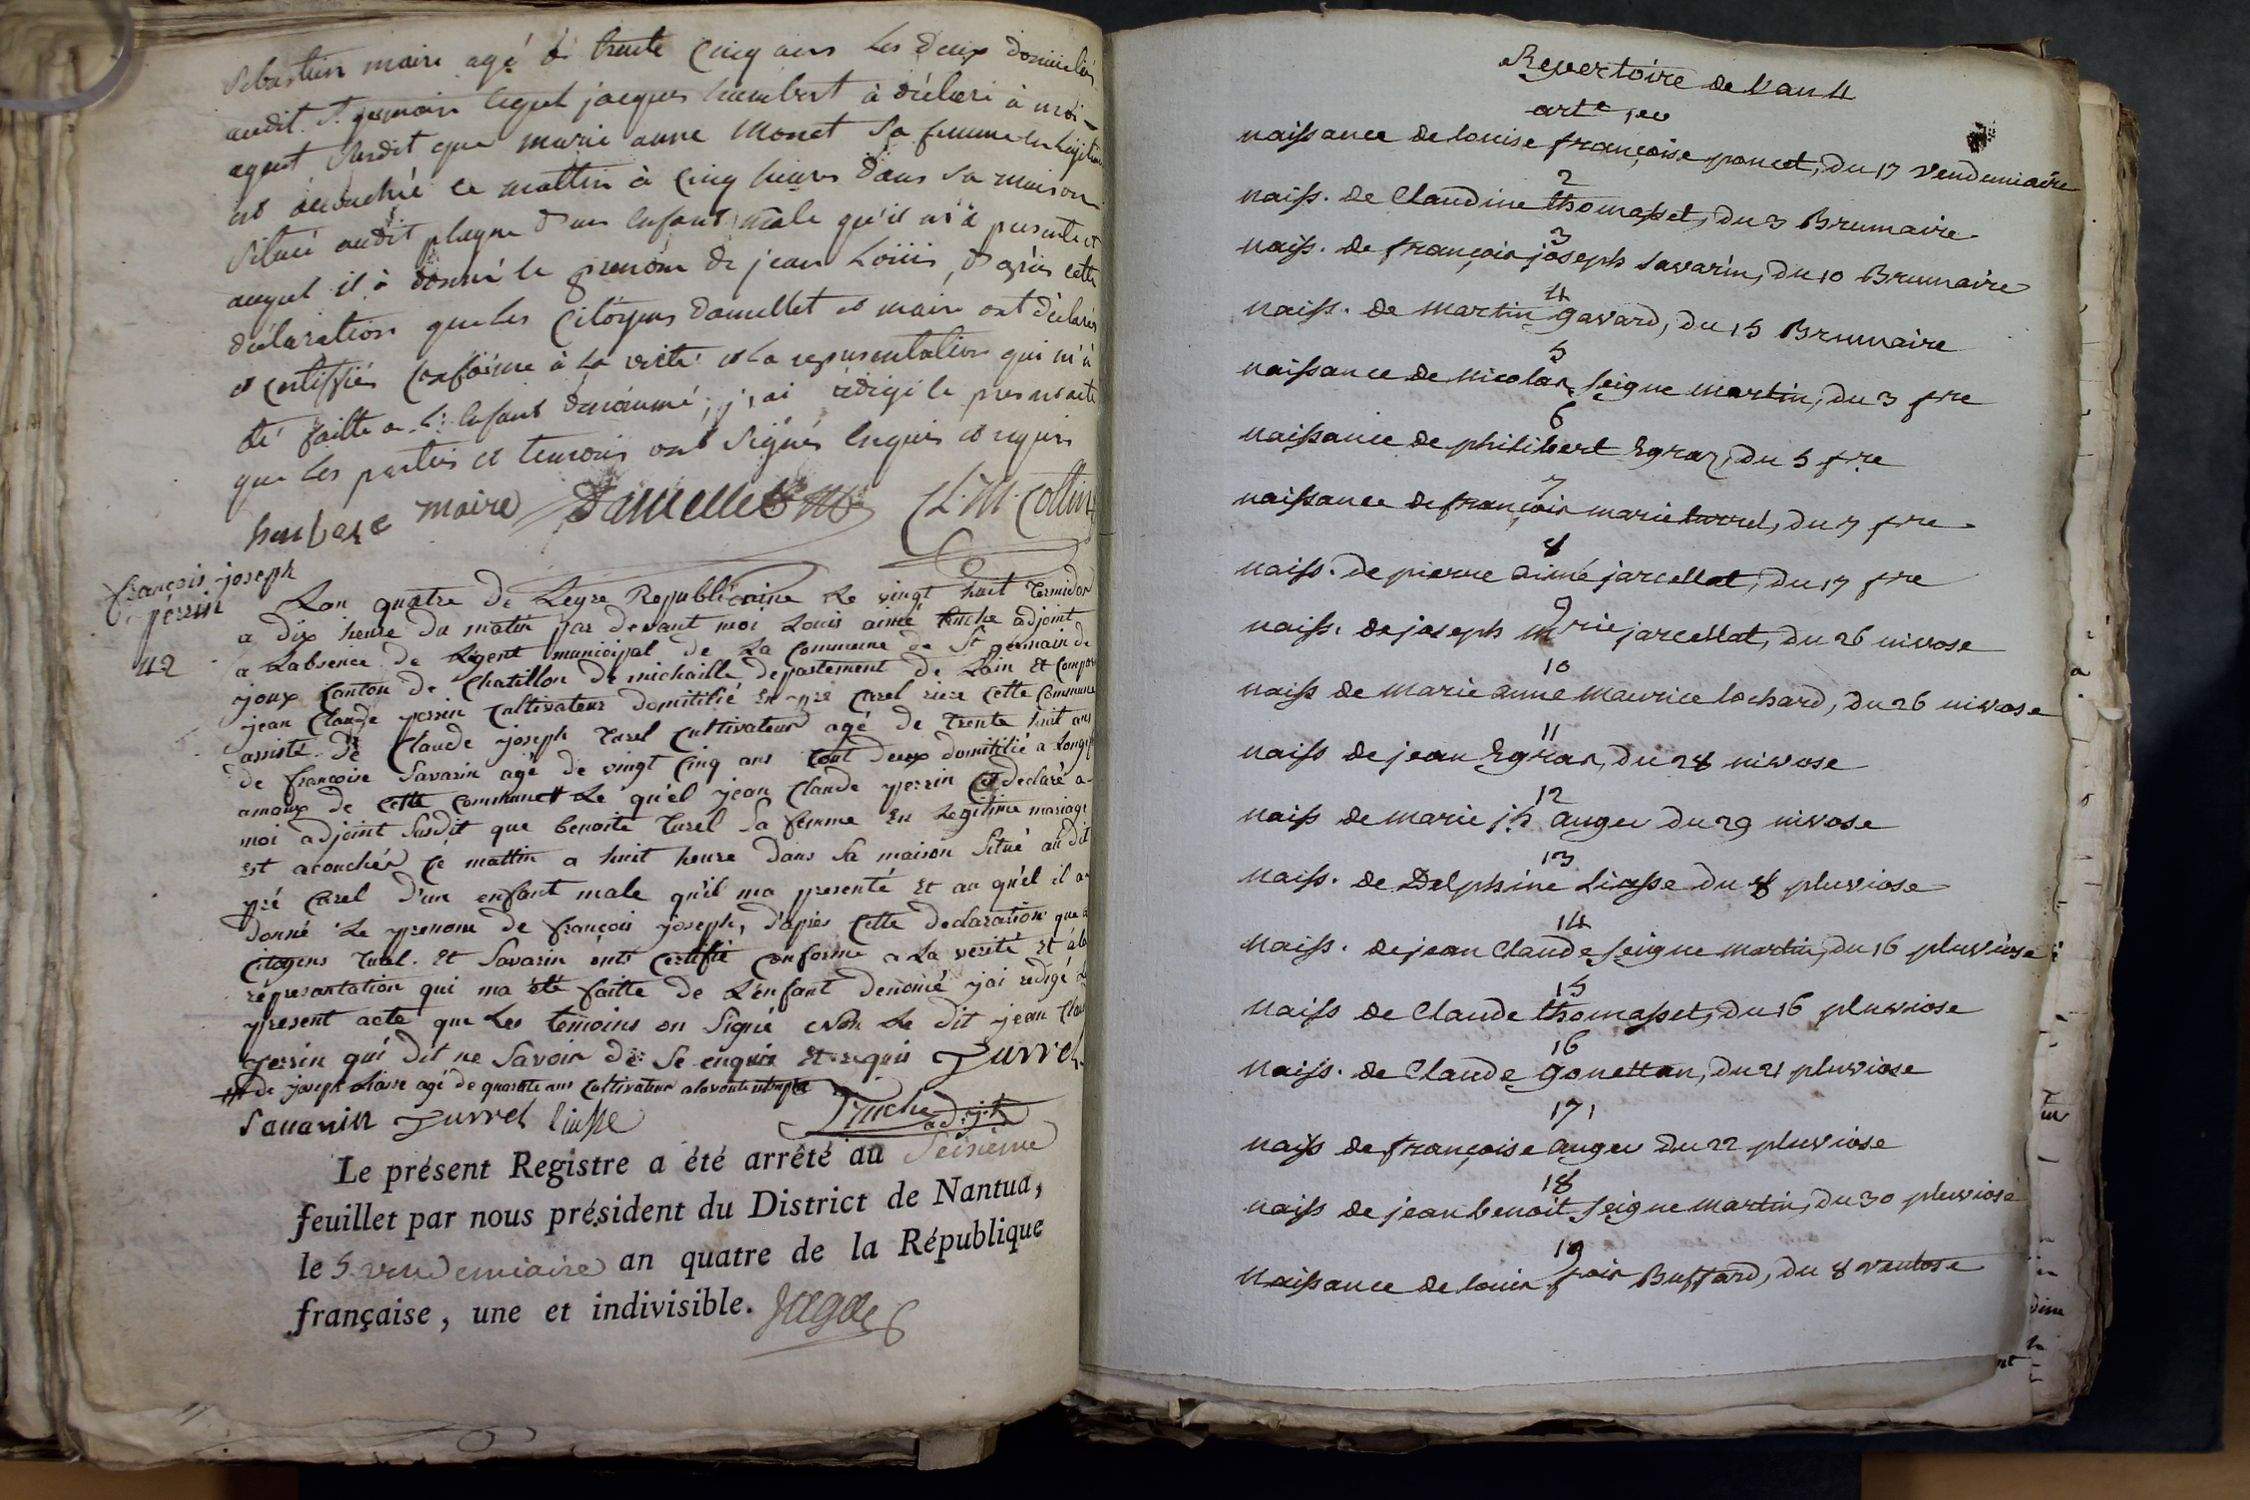 Sebastien maire agé de trente cinq ans les deux domiciliés
audit St germain lequel jacques humbert à déclaré à moi
agent susdit que marie anne Monet sa femme en légitime
est acouchée ce mattin à cinq heures dans sa maison
située audit plagne d'un enfant mâle qu'il m'à presenté et
auquel il à donné le prenom de jean Loüis, d'après cette
déclaration que les Citoyens Damellet et maire ont déclarés
et certiffiés conforme à la verité et la representation qui m'à
été faitte de l'enfant dénommé; j'ai rédigé le present acte
que les parties et temoins ont signés enquis et requis
humbert maire Damellet Cl. M. Collin
françois joseph
perrin
42
Lan quatre de Leyre Republicaine Le vingt huit Termidor
a dix heure du matin par devant moi Louis aimé Luche adjoint
a Labsence de Légent municipal de La Commune de St germain de
joux Canton de Chatillon de michaille departement de Lain Et Comparu
jean Claude perrin Cultivateur domitilié En pré Carel riere Cette Commune
assisté de Claude joseph Turel Cultivateur agé de trente huit ans
de françoise Savarin agé de vingt Cinq ans tout deux domitilié a Longe
amoux de Cette Commune Le qu'el jean Claude perrin a declaré a
moi adjoint Susdit que benoite Turel Sa femme En Legitime mariage
est acouchée Ce mattin a huit heure dans Sa maison Situé au dit
pré Carel d'un enfant male qu'il ma presenté Et au qu'el il a
donné Le prenom de françois joseph, d'après Cette declaration que
Citoyens Turel Et Savarin onts Certifié Conforme a La verité Et a la
représantation qui ma été faitte de L'enfant denomé j'ai redigé Le
present acte que Les temoins on Signé Non Le dit jean Clau
perrin qui dit ne Savoir de Se enquis Et requis Turrel
de joseph Liasse agé de quarante ans Cultivateur
Savarin Turrel liasse Luche adjt
Le présent Registre a été arrêté au Seisieme
feuillet par nous président du District de Nantua,
le 5 vendemiaire an quatre de la République
française, une et indivisible.
Repertoire de l'an 4
arte 1er
naissance de louise françoise poncet, du 17 vendemiaire
2
naiss. de Claudine thomasset, du 3 Brumaire
3
naiss. de françois joseph savarin, du 10 Brumaire
4
naiss. de martin gavard, du 15 Brumaire
5
naissance de nicolas seigne martin, du 3 fre
6
naissance de philibert Egraz, du 5 fre
7
naissance de françois marie turrel, du 7 fre
8
naiss. de pierre aimé jarcellat, du 17 fre
9
naiss. de joseph mrie jarcellat, du 26 nivose
10
naiss de marie anne maurice lochard, du 26 nivose
11
naiss de jean Egras, du 28 nivose
12
naiss de marie jh auger du 29 nivose
13
naiss. de Delphine Liasse du 8 pluviose
14
naiss. de jean Claude seigne martin, du 16 pluviose
15
naiss de Claude thomasset, du 16 pluviose
16
naiss. de Claude gonettan, du 21 pluviose
17
naiss de françoise auger du 22 pluviose
18
naiss de jean benoit seigne martin, du 30 pluviose
19
naissance de louis fois Buffard, du 8 ventose